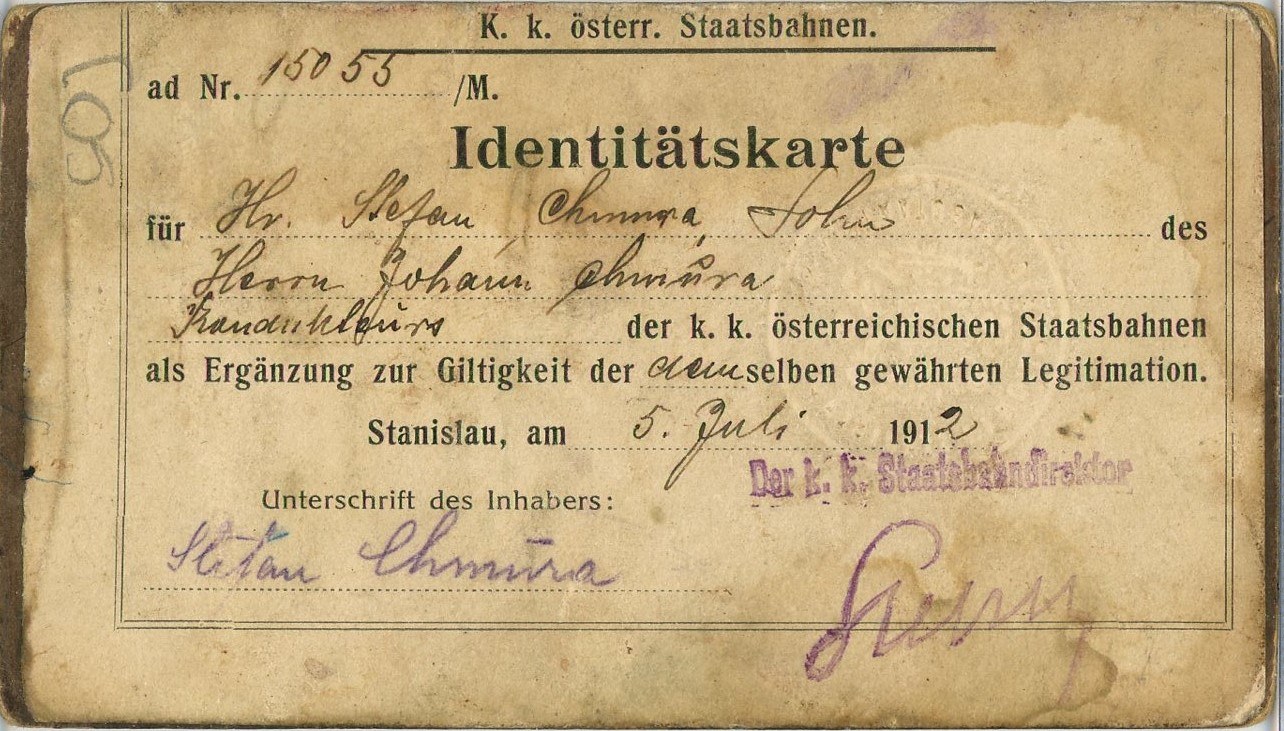 K. k. österr. Staatsbahnen.
ad Nr. 15055 /M.
Identitätskarte
für Hr. Stefan Chmura, Sohn des
Herrn Johann Chmura
Kondukteurs der k. k. österreichischen Staatsbahnen
als Ergänzung zur Giltigkeit der demselben gewährten Legitimation.
Stanislau, am 5. Juli 1912
Der k. k. Staatsbahndirektor
Unterschrift des Inhabers:
Stefan Chmura